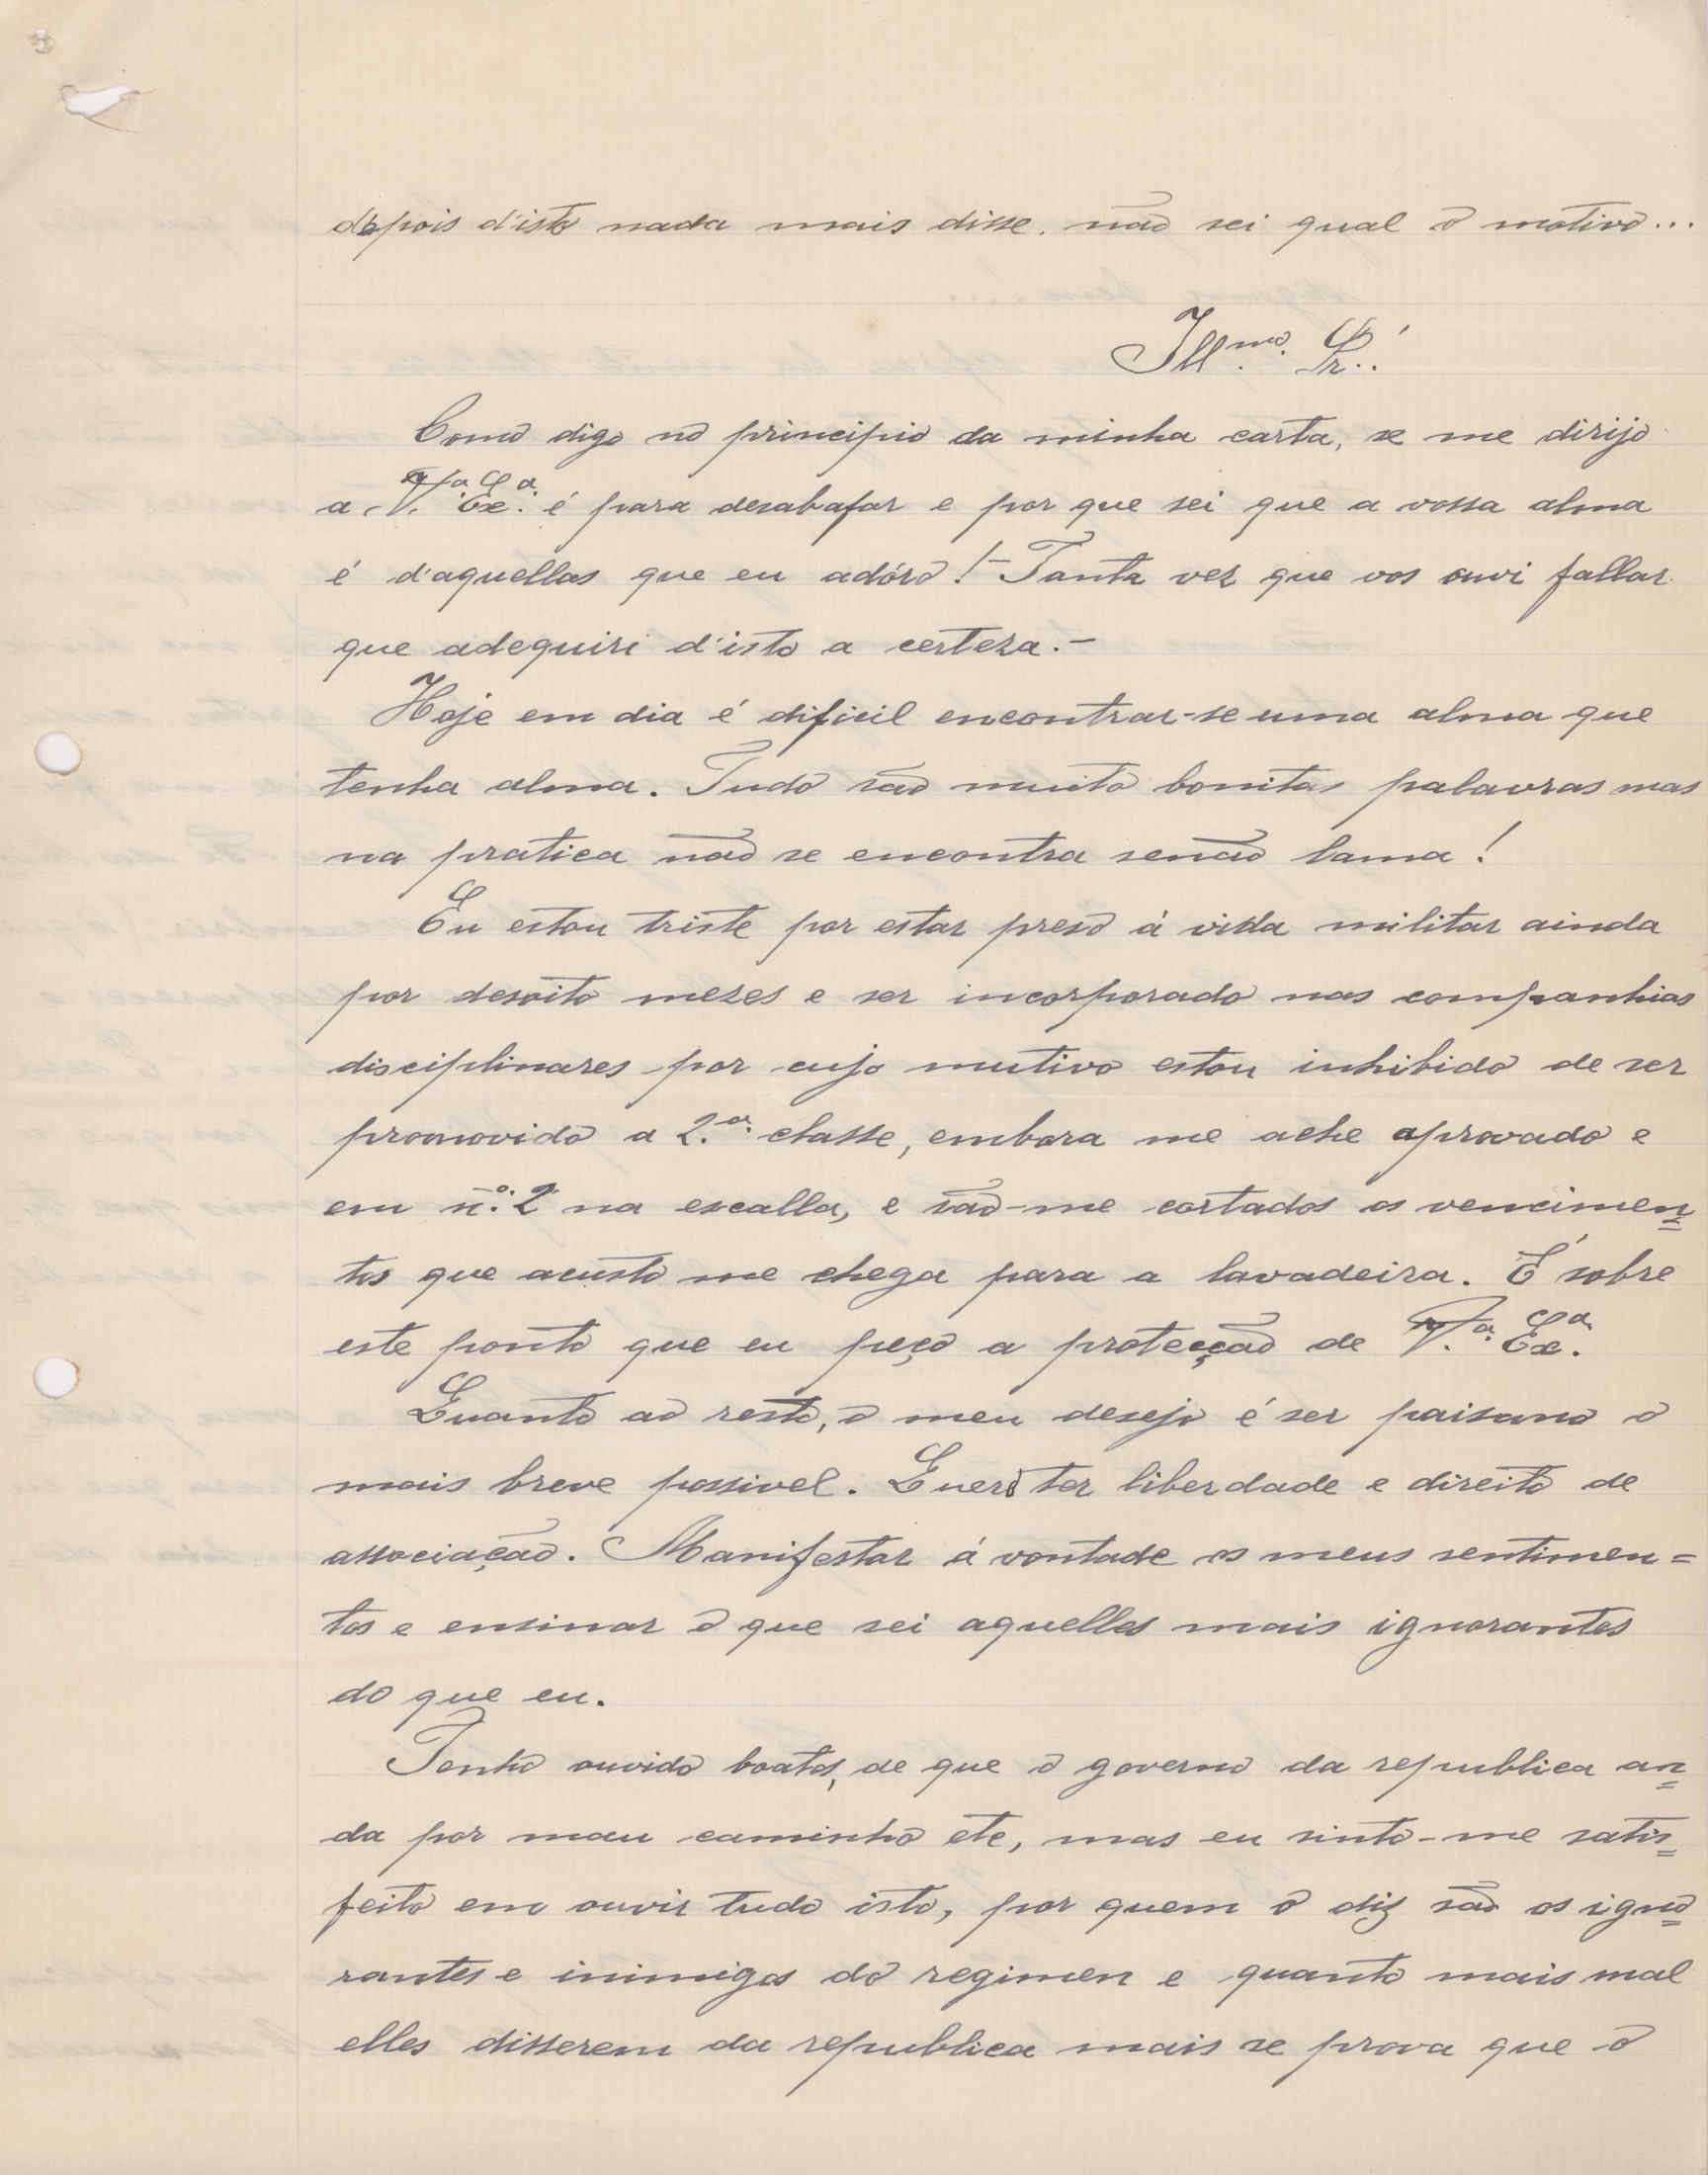 depois d'isto nada mais disse. não sei qual o motivo...
Ill.mo Sr.!
Como digo no principio da minha carta, se me dirijo
a V.a Ex.a é para desabafar e por que sei que a vossa alma
é d'aquellas que eu adóro! - Tanta vez que vos ouvi fallar
que adequiri d'isto a certeza. -
Hoje em dia é dificil encontrar-se uma alma que
tenha alma. Tudo são muito bonitas palavras mas
na pratica não se encontra senão lama!
Eu estou triste por estar preso á vida militar ainda
por desoito mezes e ser incorporado nas companhias
disciplinares por cujo mutivo estou inhibido de ser
promovido a 2.a classe, embora me ache aprovado e
em n.o 2 na escalla, e são-me cortados os vencimen=
tos que acusto me chega para a lavadeira. É sobre
este ponto que eu peço a protecção de V.a Ex.a
Quanto ao resto, o meu desejo é ser paisano o
mais breve possivel. Quero ter liberdade e direito de
associação. Manifestar á vontade os meus sentimen=
tos e ensinar o que sei aquelles mais ignorantes
do que eu.
Tenho ouvido boatos, de que o governo da republica an=
da por mau caminho etc, mas eu sinto-me satis=
feito em ouvir tudo isto, por quem o diz são os igno=
rantes e inimigos do regimen e quanto mais mal
elles disserem da republica mais se prova que o